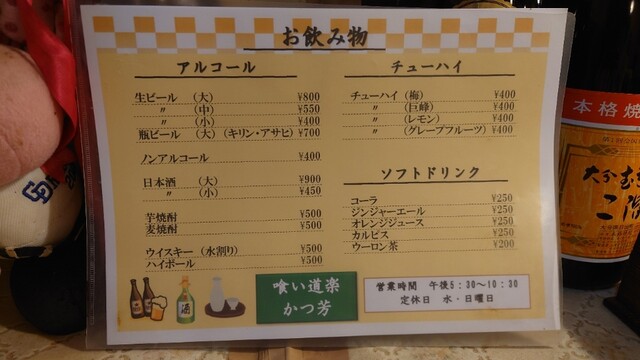 お飲み物
アルコール
生ビール （大） ¥800
〃 （中） ¥550
〃 （小） ¥400
瓶ビール （大）（キリン・アサヒ） ¥700
ノンアルコール ¥400
日本酒 （大） ¥900
〃 （小） ¥450
芋焼酎 ¥500
麦焼酎 ¥500
ウイスキー（水割り） ¥500
ハイボール ¥500
チューハイ
チューハイ（梅） ¥400
〃 （巨峰） ¥400
〃 （レモン） ¥400
〃 （グレープフルーツ） ¥400
ソフトドリンク
コーラ ¥250
ジンジャーエール ¥250
オレンジジュース ¥250
カルピス ¥250
ウーロン茶 ¥200
酒
喰い道楽
かつ芳
営業時間 午後5：30～10：30
定休日 水・日曜日
本格焼
大分むぎ
二階